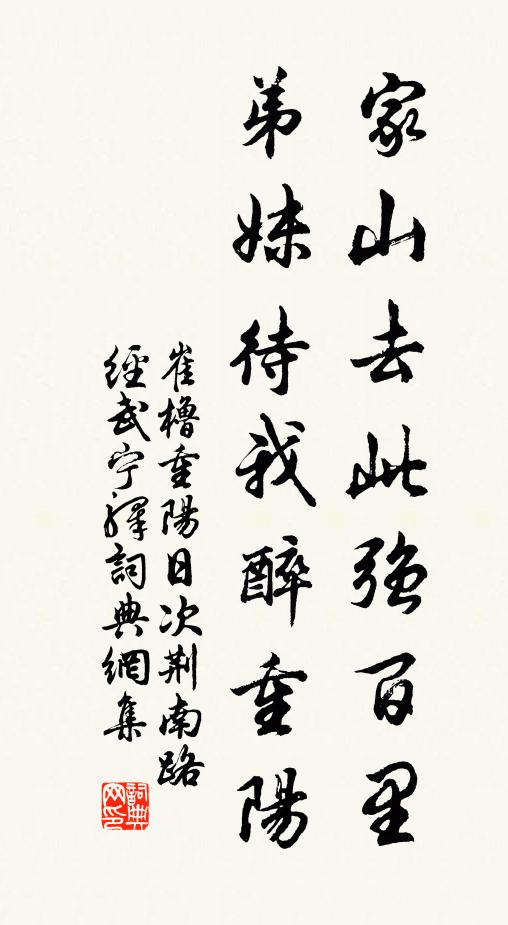 家山去此強百里
弟妹待我醉重陽
崔櫓重陽日次荆南路
經武宁驛詞典網集
詞典
网印